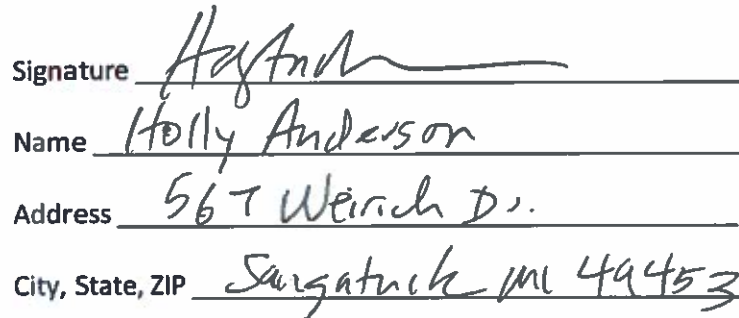 Signature
Name Holly Anderson
Address 567 Weirich Dr.
City, State, ZIP Saugatuck MI 49453